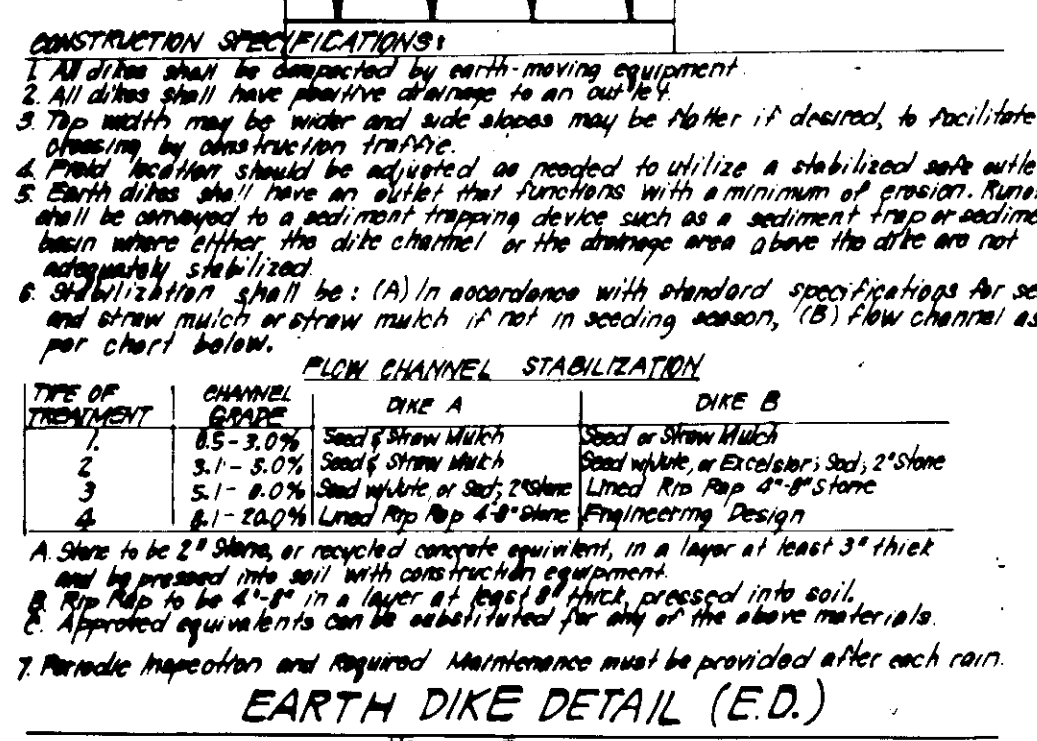 CONSTRUCTION SPECIFICATIONS:
1. All dikes shall be compacted by earth-moving equipment.
2. All dikes shall have positive drainage to an outlet.
3. Top width may be wider and side slopes may be flatter if desired, to facilitate
crossing by construction traffic.
4. Field location should be adjusted as needed to utilize a stabilized safe outle
5. Earth dikes shall have an outlet that functions with a minimum of erosion. Runo
shall be conveyed to a sediment trapping device such as a sediment trap or sedime
basin where either the dike channel or the drainage area above the dike are not
adequately stabilized.
6. Stabilization shall be: (A) In accordance with standard specifications for se
and straw mulch or straw mulch if not in seeding season, (B) flow channel as
per chart below.
FLOW CHANNEL STABILIZATION
TYPE OF TREATMENT CHANNEL GRADE DIKE A DIKE B
1. 0.5-3.0% Seed & Straw Mulch Seed or Straw Mulch
2 3.1-5.0% Seed & Straw Mulch Seed w/Jute, or Excelsior; Sod; 2" Stone
3 5.1-8.0% Seed w/Jute, or Sod; 2" Stone Lined Rip Rap 4"-8" Stone
4. 8.1-20.0% Lined Rip Rap 4-8" Stone Engineering Design
A. Stone to be 2" Stone, or recycled concrete equivilent, in a layer at least 3" thick
and be pressed into soil with construction equipment.
B. Rip Rap to be 4"-8" in a layer at least 8" thick, pressed into soil.
C. Approved equivalents can be substituted for any of the above materials.
7. Periodic Inspection and Required Maintenance must be provided after each rain.
EARTH DIKE DETAIL (E.D.)